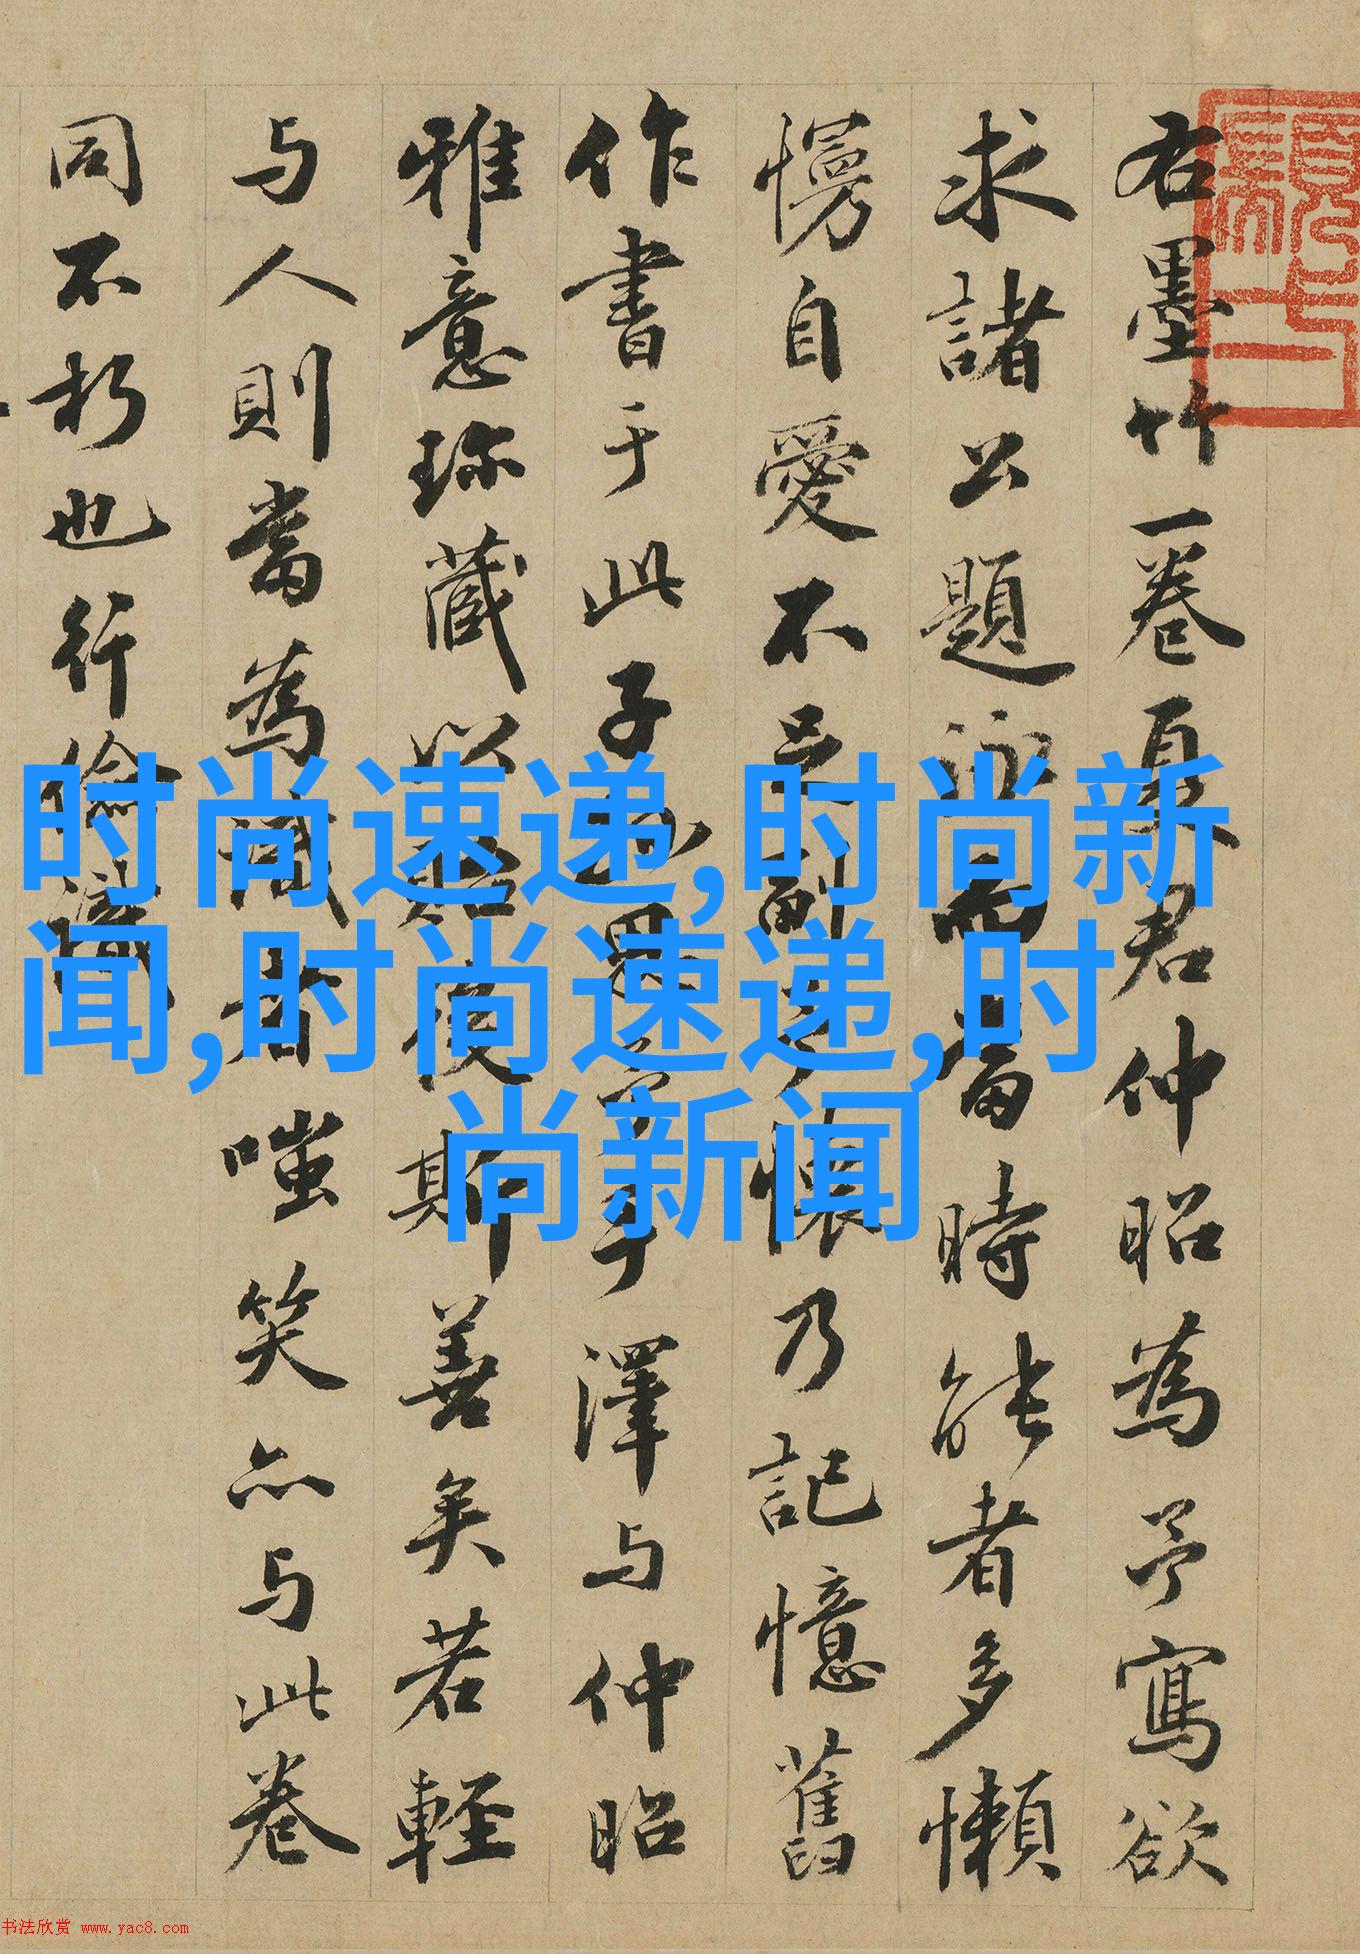 右墨竹一卷夏君仲昭為予寫欲
求諸公題詠而當時能者多懶
慢自愛不足副予懷乃記憶舊
作書于此子孫思予手澤与仲昭
雅意珍藏以貽後斯善矣若輕
与人則當為識者嗤笑亦与此卷
同不朽也行儉識
时尚速递,时尚新
闻,时尚速递,时
尚新闻
书法欣赏 www.yac8.com